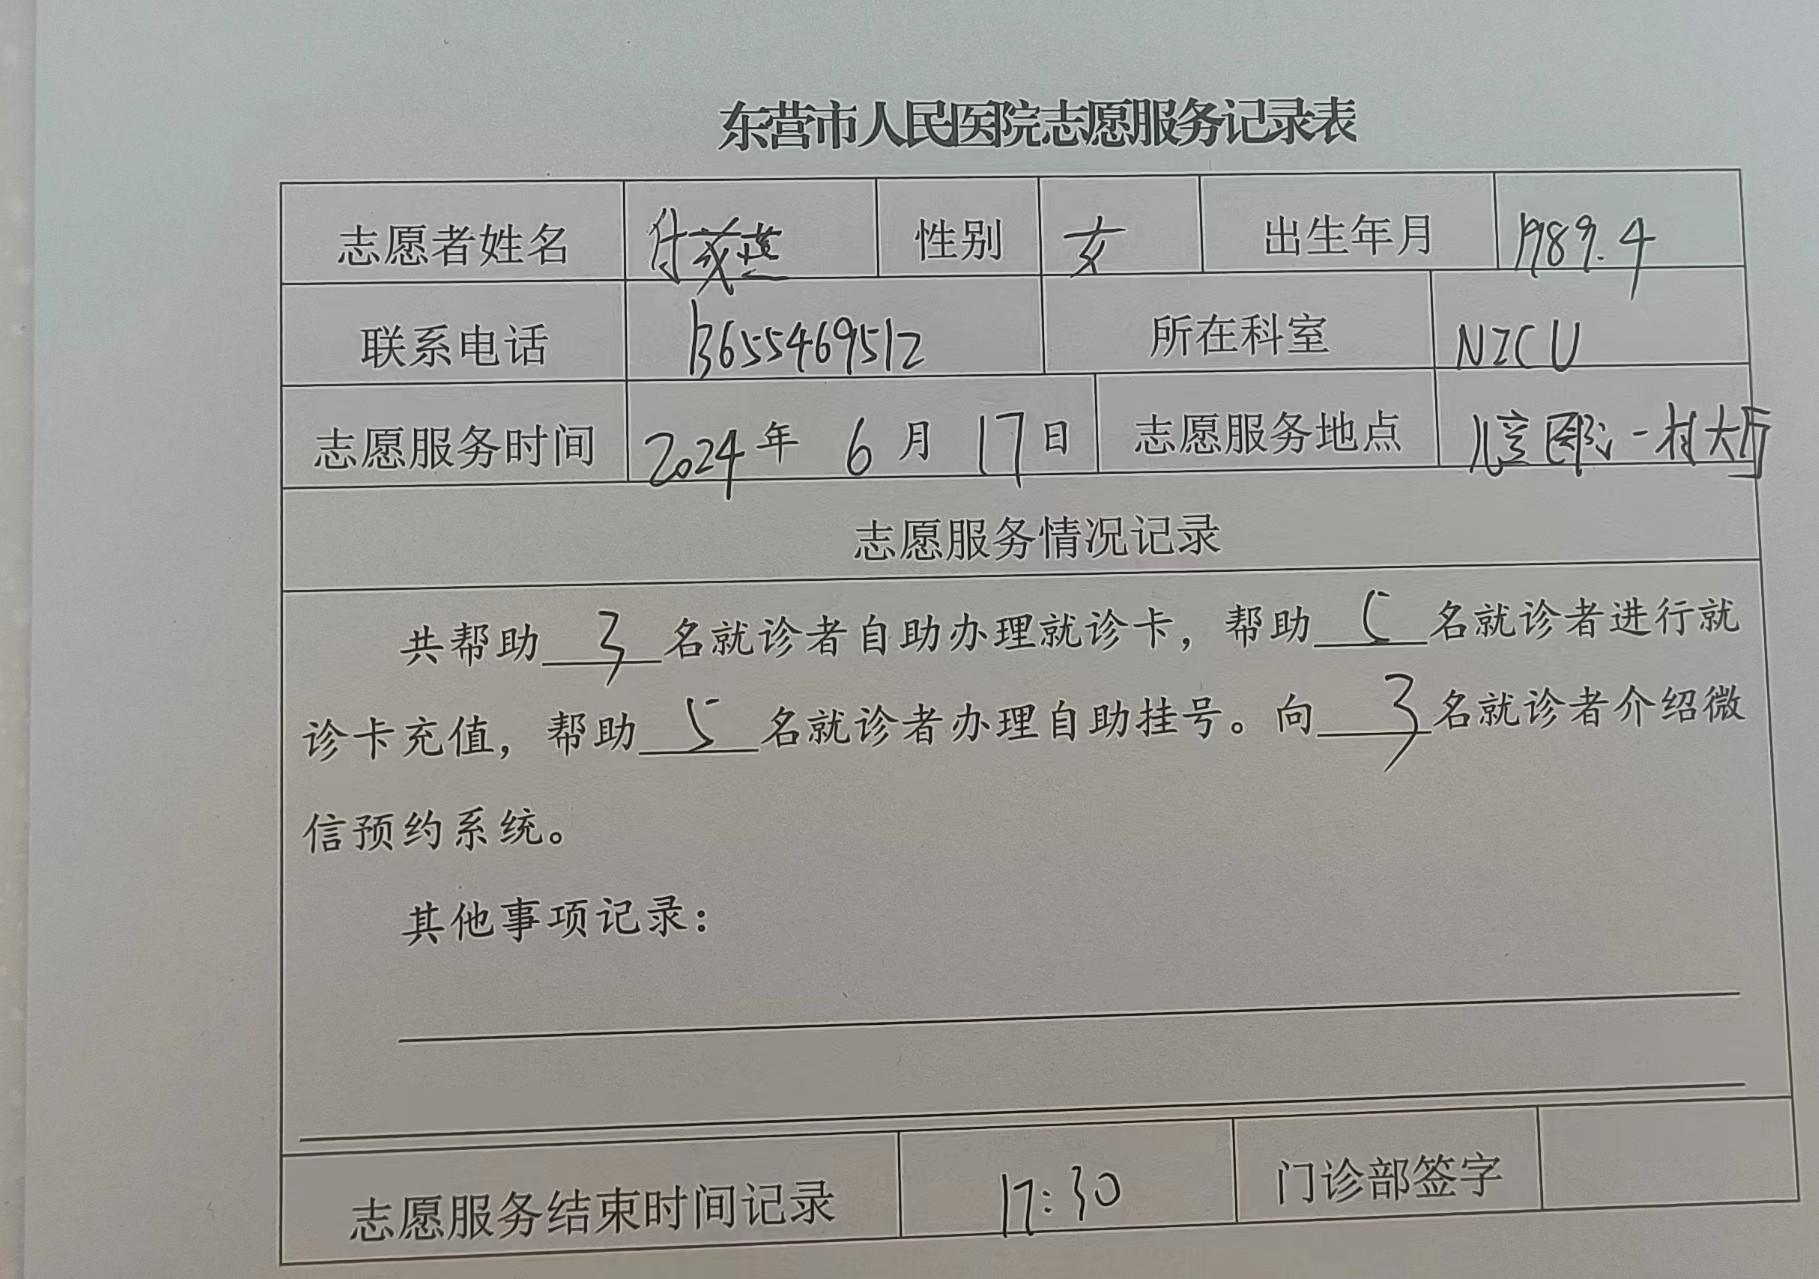 东营市人民医院志愿服务记录表
志愿者姓名 付 性别 女 出生年月 1989.4
联系电话 13655469512 所在科室 NICU
志愿服务时间 2024年 6月 17日 志愿服务地点 儿童医院一村大厅
志愿服务情况记录
共帮助 3 名就诊者自助办理就诊卡，帮助 5 名就诊者进行就
诊卡充值，帮助 5 名就诊者办理自助挂号。向 3 名就诊者介绍微
信预约系统。
其他事项记录：
志愿服务结束时间记录 17:30 门诊部签字